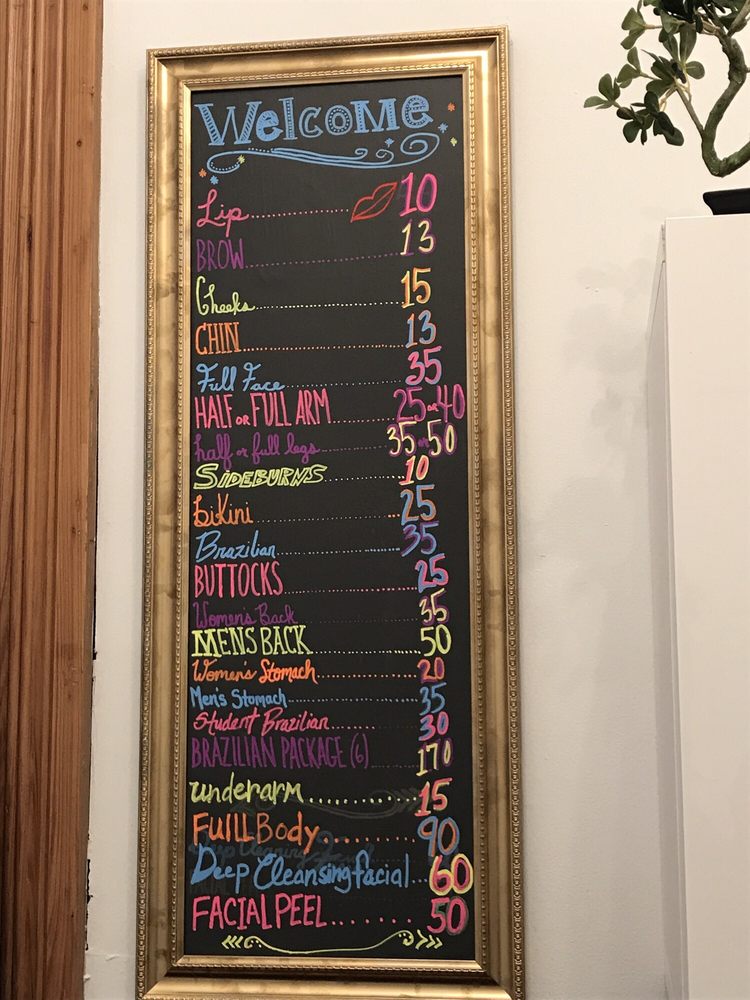 Welcome
Lip 10
BROW 13
Cheeks 15
CHIN 13
Full Face 35
HALF or FULL ARM 25 or 40
half or full legs 35 or 50
SIDEBURNS 10
biKini 25
Brazilian 35
BUTTOCKS 25
Women's Back 35
MENS BACK 50
Women's Stomach 20
Men's Stomach 35
Student Brazilian 30
BRAZILIAN PACKAGE (6) 170
underarm 15
Full Body 90
Deep Cleansing facial 60
FACIAL PEEL 50